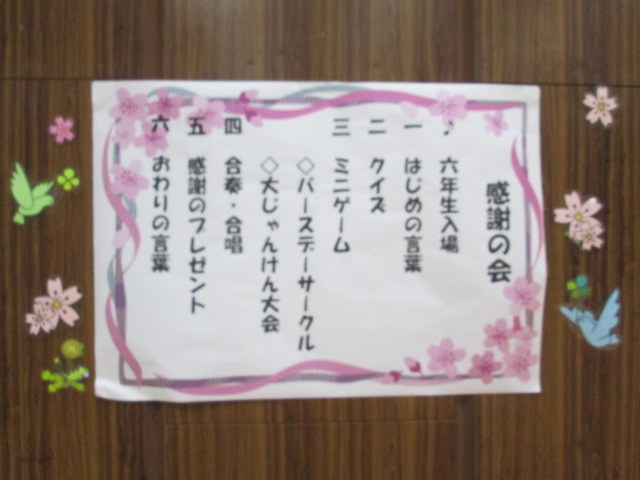 感謝の会
♪ 六年生入場
一 はじめの言葉
二 クイズ
三 ミニゲーム
◇バースデーサークル
◇大じゃんけん大会
四 合奏・合唱
五 感謝のプレゼント
六 おわりの言葉